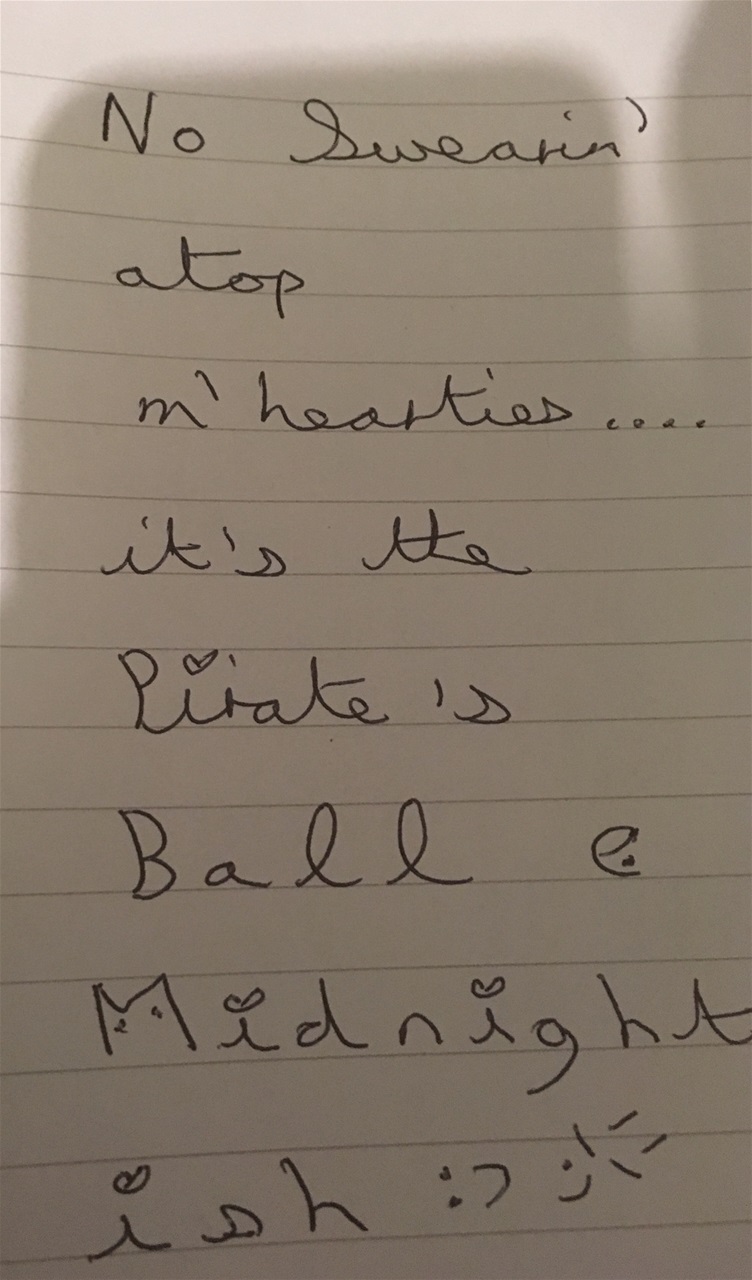 No Swearin'
atop
m' hearties....
it's the
Pirate's
Ball @
Midnight
ish :)